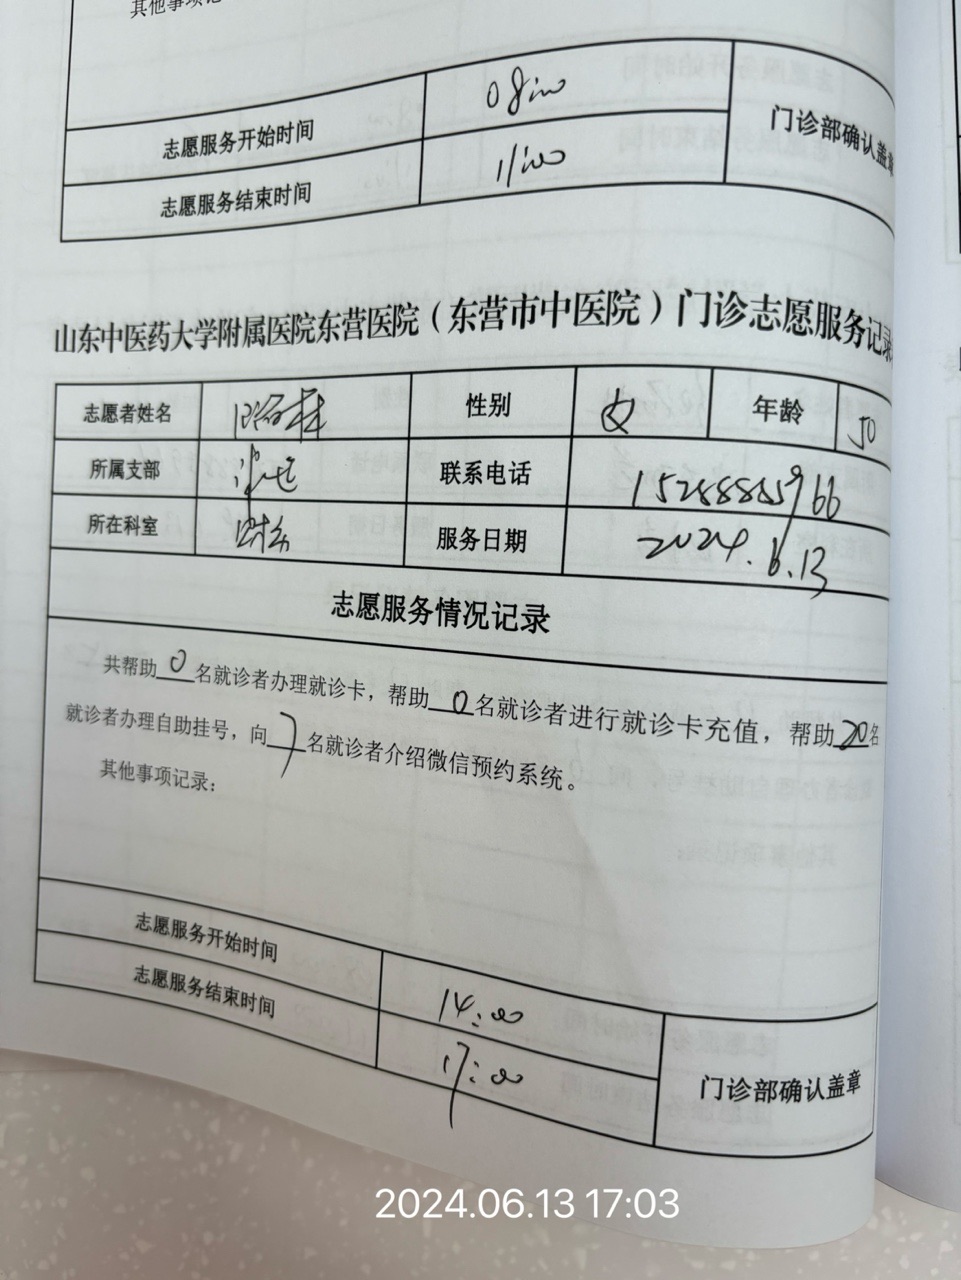 其他事项记
志愿服务开始时间 08:00 门诊部确认盖章
志愿服务结束时间 11:00
山东中医药大学附属医院东营医院（东营市中医院）门诊志愿服务记录
志愿者姓名 性别 女 年龄 50
所属支部 联系电话
所在科室 服务日期 2024.6.13
志愿服务情况记录
共帮助0名就诊者办理就诊卡，帮助0名就诊者进行就诊卡充值，帮助20名
就诊者办理自助挂号，向7名就诊者介绍微信预约系统。
其他事项记录：
志愿服务开始时间 14:00
志愿服务结束时间 17:00 门诊部确认盖章
2024.06.13 17:03